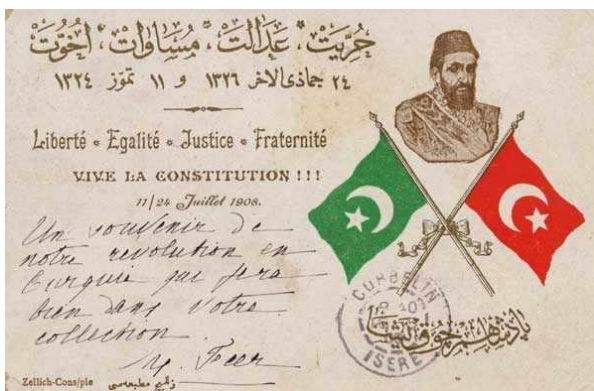 حرّيت، عدالت، مساوات، اخوّت
٢٤ جماذی الاخر ١٣٢٦ و ١١ تموز ١٣٢٤
Liberté • Egalité • Justice • Fraternité
VIVE LA CONSTITUTION !!!
11/24 Juillet 1908.
Un souvenir de
notre revolution en
Turquie qui fera
bien dans votre
collection.
Feer
پادشاهم چوق یشا
CORBELIN
ISERE
Zellich-Cons/ple زليچ مطبعه‌سی